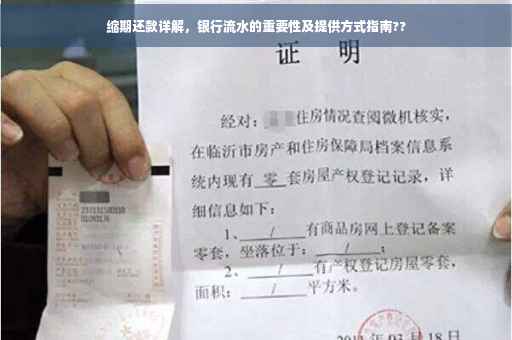 缩期还款详解，银行流水的重要性及提供方式指南??
证 明
经对：住房情况查阅微机核实，
在临沂市房产和住房保障局档案信息系
统内现有 零 套房屋产权登记记录，详
细信息如下：
1、 / 有商品房网上登记备案
零套，坐落位于： / ；
2、 / 有产权登记房屋零套，
面积： / 平方米。
03 月 18 日